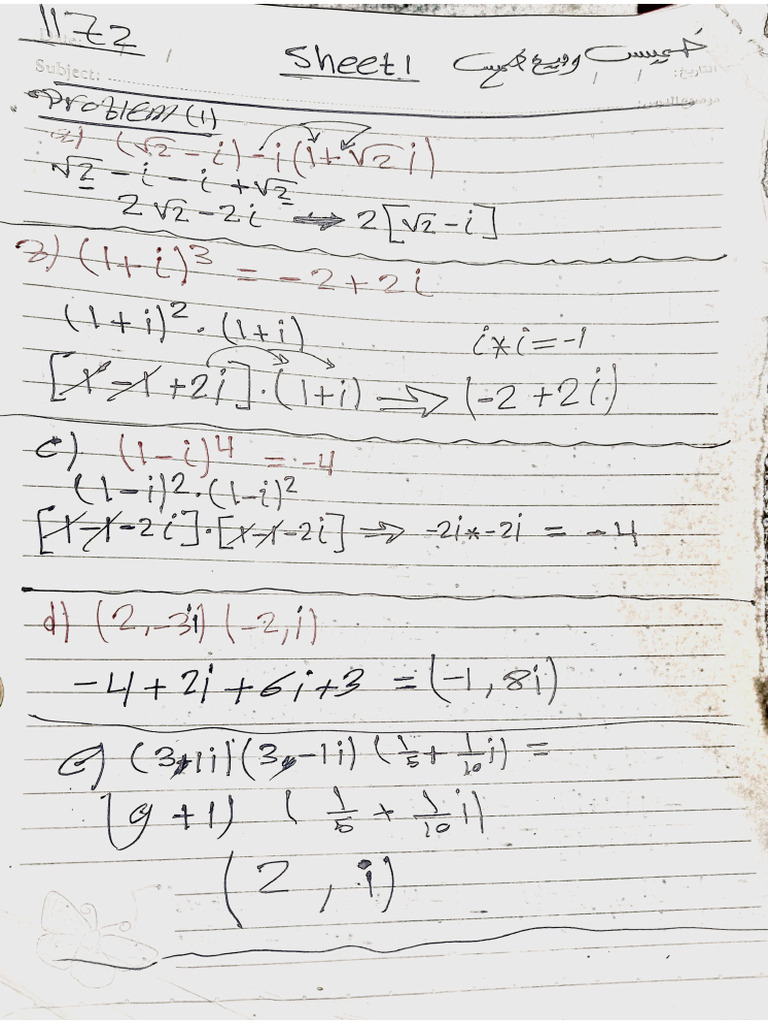 1172
Sheet 1
خميس وديع خميس
Subject:
التاريخ:
Problem (1)
a) (√2 - i) - i(1 + √2 i)
√2 - i - i + √2
2√2 - 2i ⟹ 2[√2 - i]
b) (1 + i)^3 = -2 + 2i
(1 + i)^2 · (1 + i)
i * i = -1
[1 - 1 + 2i] · (1 + i) ⟹ (-2 + 2i)
c) (1 - i)^4 = -4
(1 - i)^2 · (1 - i)^2
[1 - 1 - 2i] · [1 - 1 - 2i] ⟹ -2i * -2i = -4
d) (2, -3i) (-2, i)
-4 + 2i + 6i + 3 = (-1, 8i)
e) (3 + 1i) (3, -1i) (1/5 + 1/10 i) =
(9 + 1) (1/5 + 1/10 i)
(2, i)